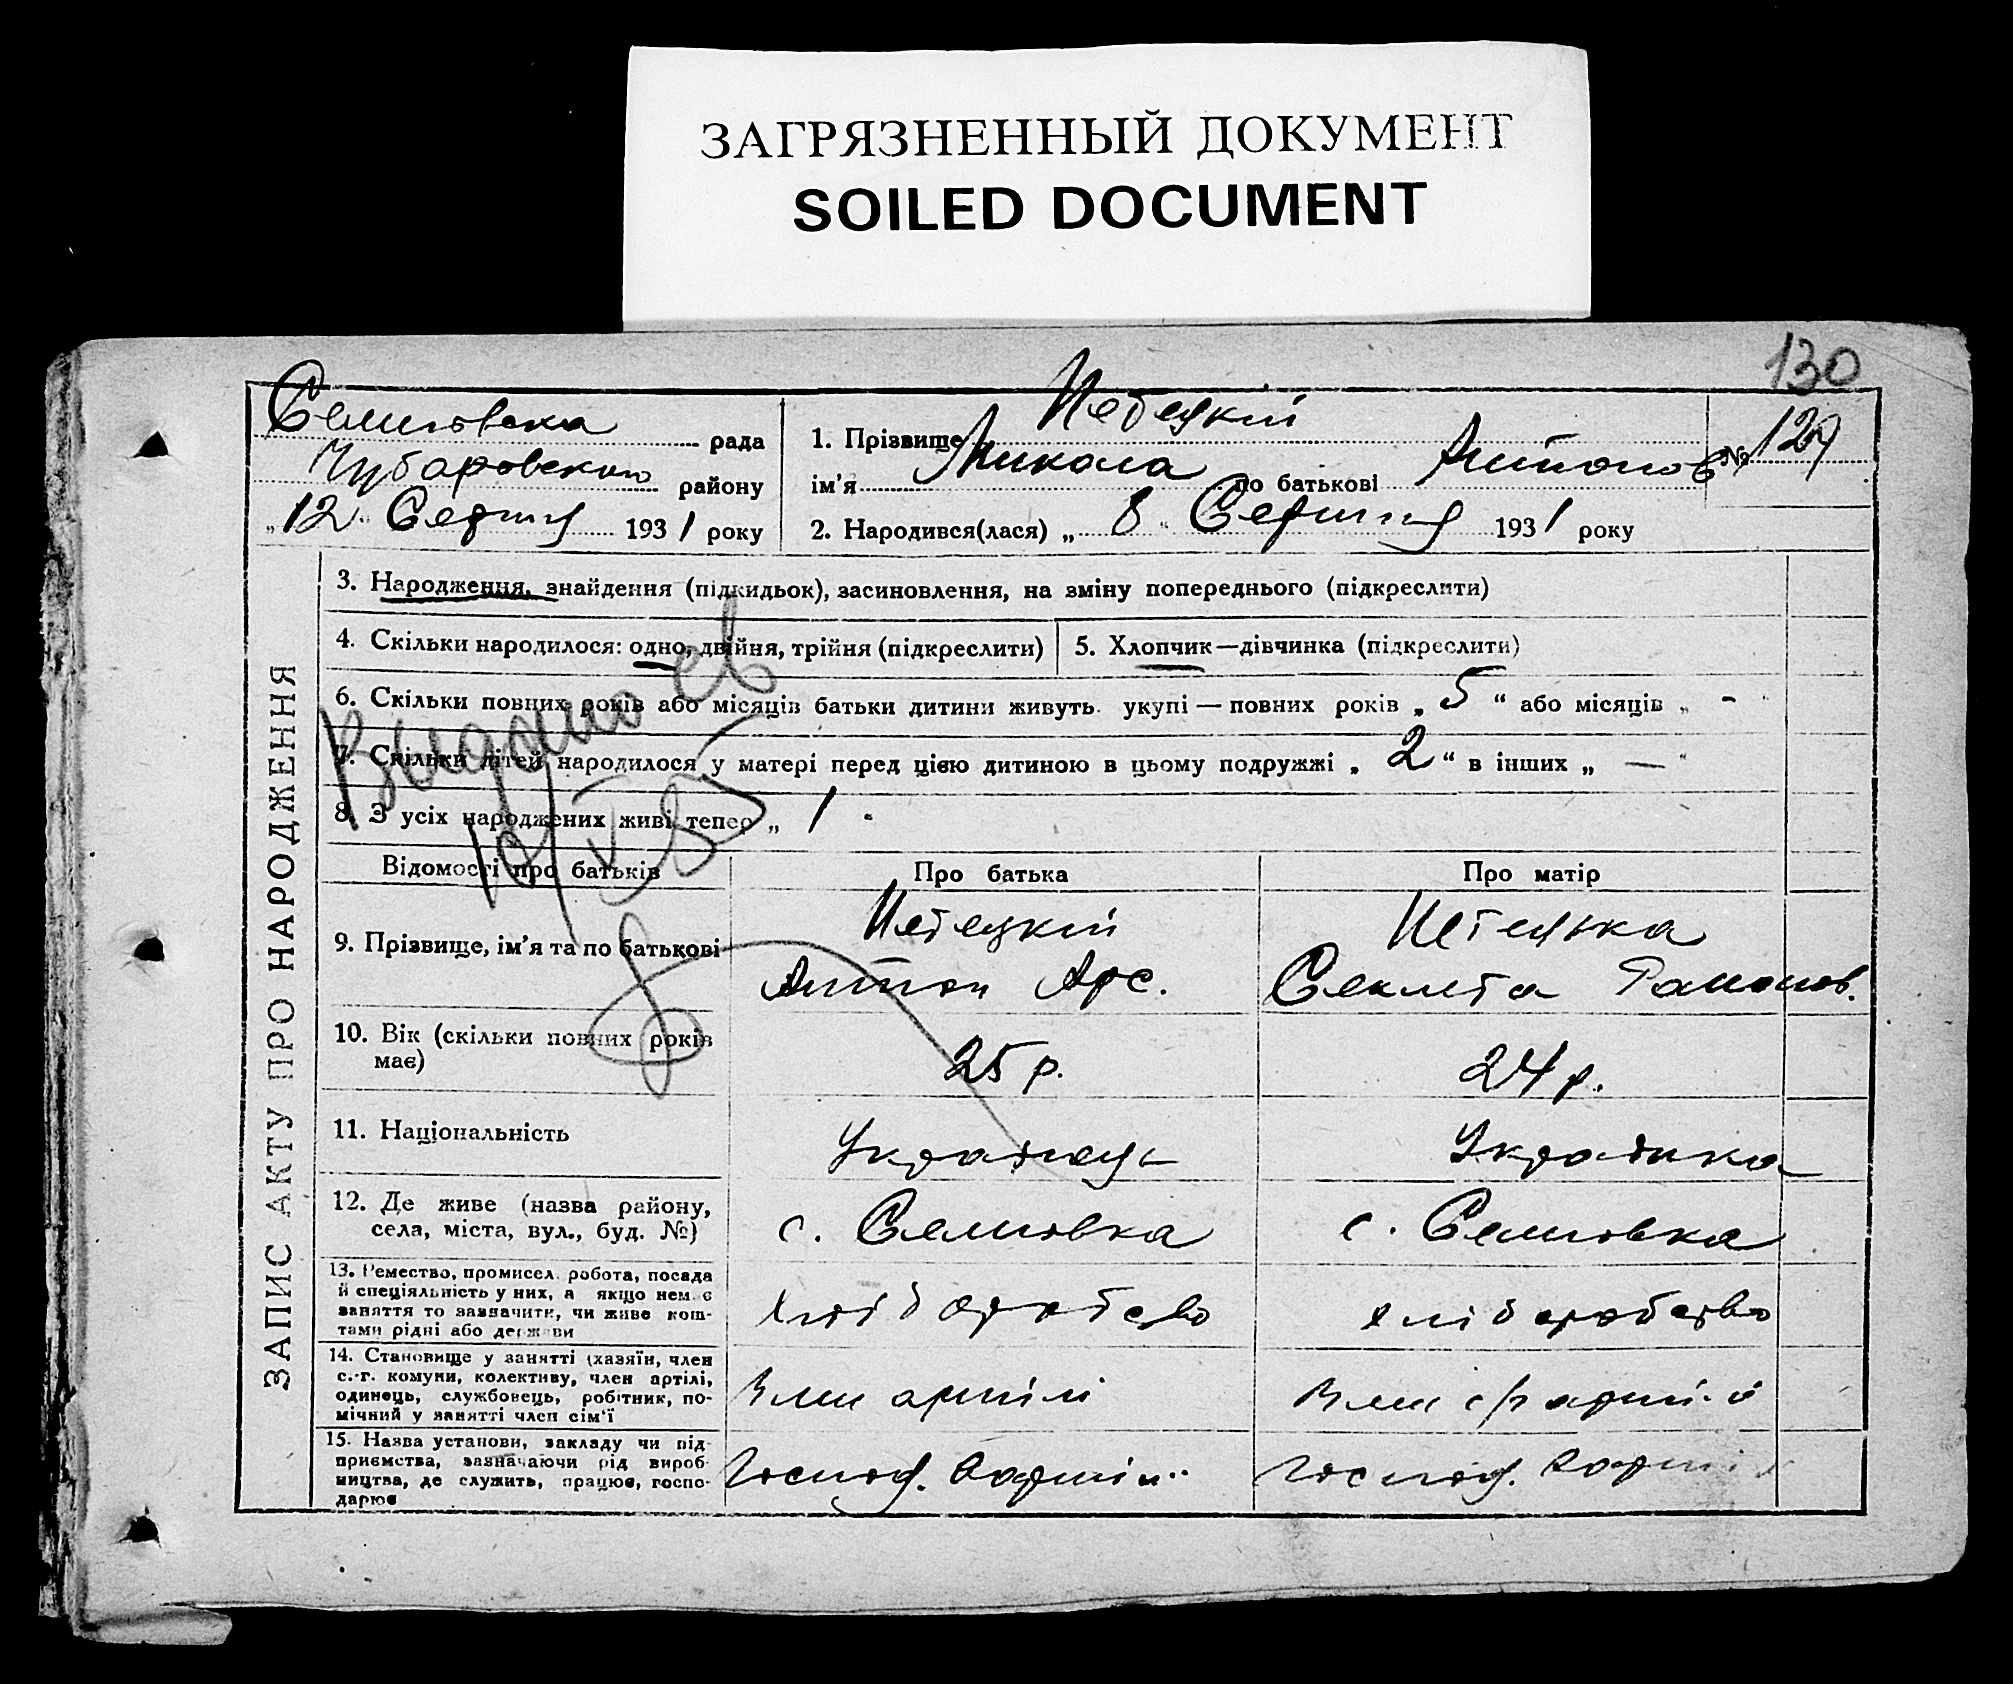 ЗАГРЯЗНЕННЫЙ ДОКУМЕНТ
SOILED DOCUMENT
130
рада
Чубаровського району
„12“ Серпня 1931 року
1. Прізвище
ім'я Микола по батькові Антонов
№ 129
2. Народився(лася) „8“ Серпня 1931 року
ЗАПИС АКТУ ПРО НАРОДЖЕННЯ
3. Народження, знайдення (підкидьок), засиновлення, на зміну попереднього (підкреслити)
4. Скільки народилося: одно, двійня, трійня (підкреслити)
5. Хлопчик—дівчинка (підкреслити)
6. Скільки повних років або місяців батьки дитини живуть укупі — повних років „5“ або місяців „-“
7. Скільки дітей народилося у матері перед цією дитиною в цьому подружжі „2“ в інших „—“
8. З усіх народжених живі тепер „1
Відомості про батьків
Про батька
Про матір
9. Прізвище, ім'я та по батькові
Антон Арс.
Секлета
10. Вік (скільки повних років має)
25 р.
24 р.
11. Національність
Українець
Українка
12. Де живе (назва району,
села, міста, вул., буд. №)
с.
с.
13. Ремество, промисел, робота, посада
й спеціяльність у них, а якщо нема є
заняття то зазначити, чи живе кош-
тами рідні або держави
хліборобство
хліборобство
14. Становище у занятті (хазяїн, член
с.-г. комуни, колективу, член артілі,
одинець, службовець, робітник, по-
мічний у занятті член сім'ї
Член артілі
Член с/г артілі
15. Назва установи, закладу чи під-
приємства, зазначаючи рід вироб-
ництва, де служить, працює, госпо-
дарює
Господ.
Господ.